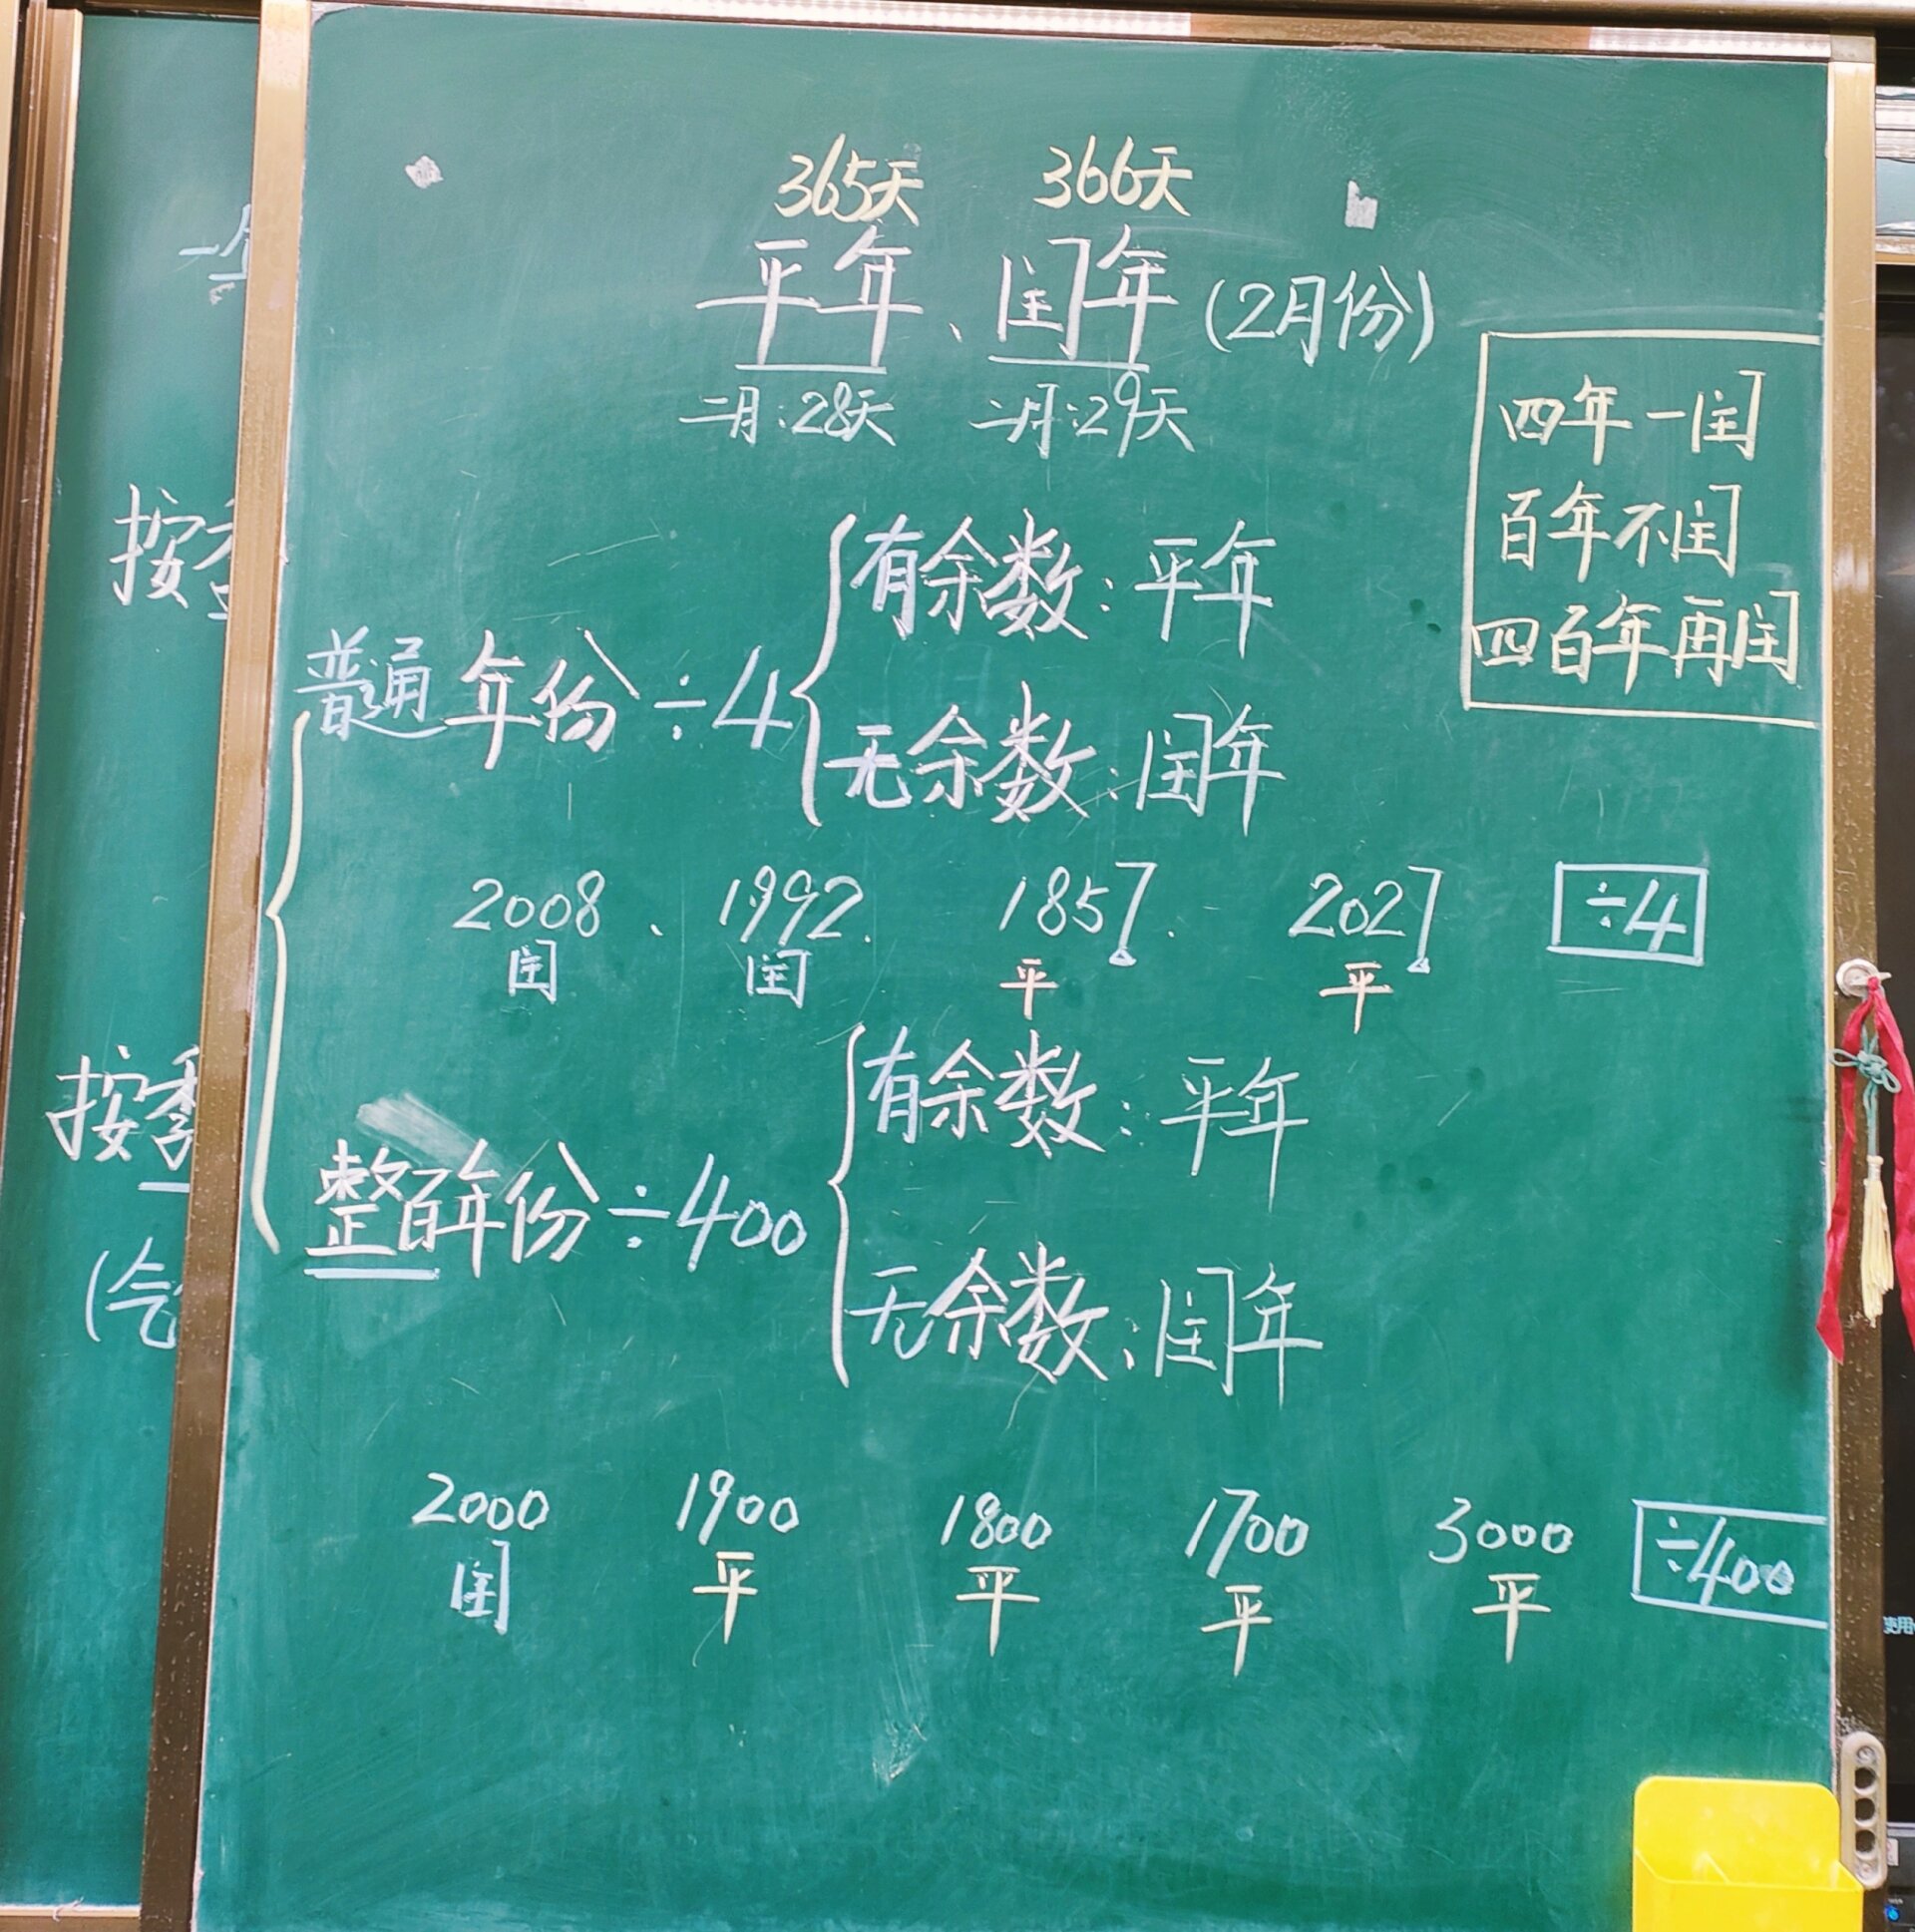 365天 366天
平年、闰年(2月份)
二月:28天 二月:29天
四年一闰
百年不闰
四百年再闰
普通年份÷4
有余数:平年
无余数:闰年
2008、1992. 1857. 2027 ÷4
闰 闰 平 平
整百年份÷400
有余数:平年
无余数:闰年
2000 1900 1800 1700 3000 ÷400
闰 平 平 平 平
按
按季
使用